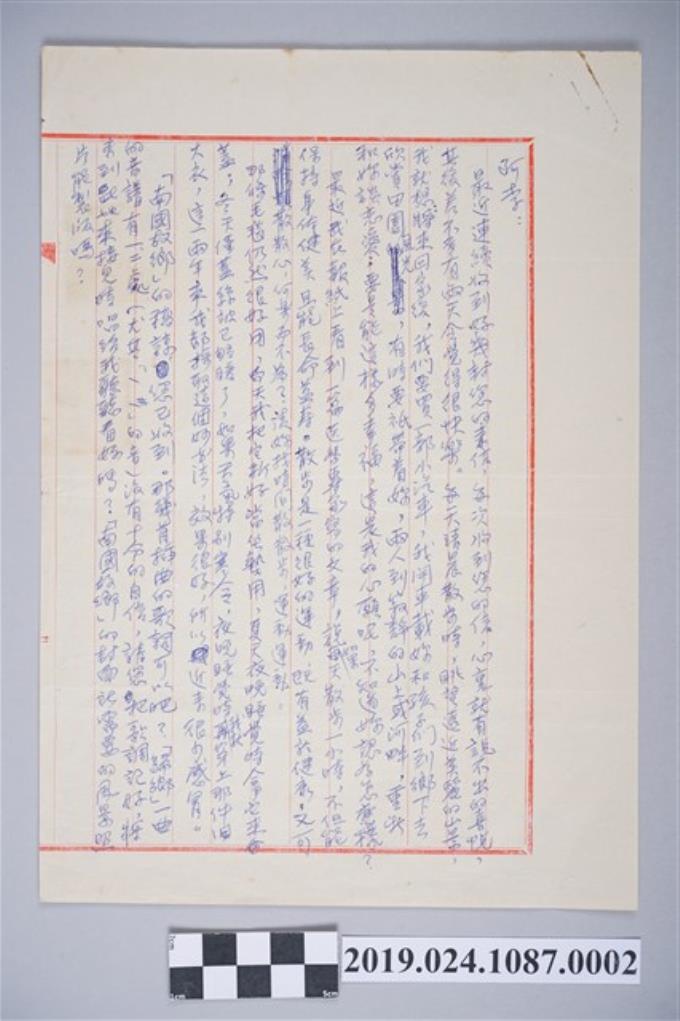 阿李:
最近連續收到好幾封您的來信,每次收到您的信,心裏就有說不出的喜悅,
其後差不多有兩天会覺得很快樂。每天清晨散步時,眺望遠近美麗的山景,
我就想將來回家後,我們要買一部小汽車,我開車載妳和孩子们到鄉下去
欣賞田園風光,有時要祇帶着妳,兩人到寂靜的山上或河畔,重
和妳談恋愛:要是能這樣多幸福,這是我的心願呢,不知道妳認為怎麼樣?
最近我在報紙上看到一篇 的文章,說如果每天散步一小時,不但能
保持身体健美,且能長命益寿。散步是一種很好的運動,既有益於健康,又可
散散心,何樂而不為?請妳找時间散散步,運動運動。
那條毛毯仍然很好用,白天我把它折好當坐墊用,夏天夜晚睡覺時拿它來
蓋,冬天僅蓋綿被已夠暖了,如果天氣特別寒冷,夜晚睡覺時我就再穿上那件
大衣,這一兩年來我都採取這個好方法,效果很好,所以近來很少感冒。
「南國故鄉」的稿諒您已收到。那幾首插曲的歌詞可以吧?「歸鄉」一曲
的音譜有一二處(尤其 的音)沒有十分的自信,請您把歌調記好,
來到此地來接見時唱給我聽聽看好嗎?「南國故鄉」的封面 需要的風景照
片能製版嗎?
2019.024.1087.0002
5cm